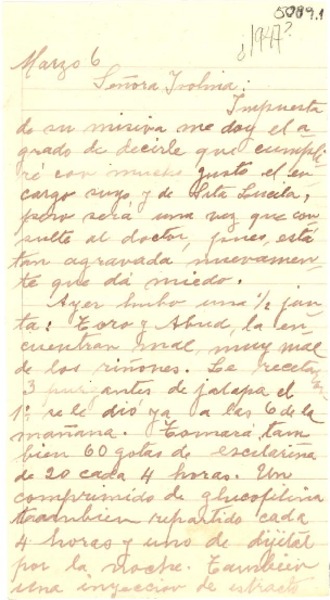 5089.1
¿1947?
Marzo 6
Señora Ivolina:
Impuesta
de su misiva me doy el a
grado de decirle que cumpli
ré con mucho gusto el en
cargo suyo y de Sita Lucila,
pero será una vez que con
sulte al doctor, pues, está
tan agravada nuevamen
te que dá miedo.
Ayer hubo una ½ jun
ta: Toro y Abud, la en
cuentran mal, muy mal
de los riñones. Le recetan
3 purgantes de jalapa el
1º se le dio ya a las 6 de la
mañana. Tomará tam
bien 60 gotas de escilarina
de 20 cada 4 horas. Un
comprimido de glucofilina
tambien repartido cada
4 horas y uno de dijital
por la noche. Tambien
una inyeccion de estracto